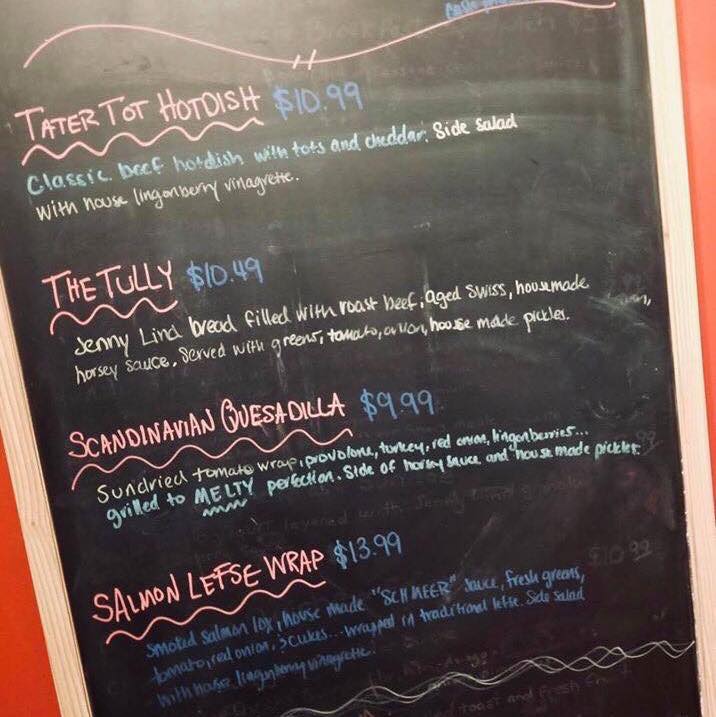 TATER TOT HOTDISH $10.99
Classic beef hotdish with tots and cheddar. Side salad
with house lingonberry vinagrette.
THE TULLY $10.49
Jenny Lind bread filled with roast beef, aged swiss, housemade
horsey sauce. Served with greens, tomato, onion, house made pickles.
SCANDINAVIAN QUESADILLA $9.99
Sundried tomato wrap, provolone, turkey, red onion, lingonberries...
grilled to MELTY perfection. Side of horsey sauce and house made pickles.
SALMON LEFSE WRAP $13.99
smoked salmon lox, house made "SCHMEER" sauce, fresh greens,
tomato, red onion, cukes... wrapped in traditional lefse. Side salad
with house lingonberry vinagrette.